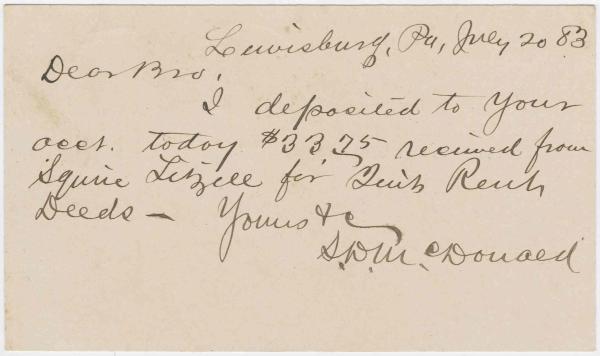 Lewisburg, Pa, July 20 83
Dear Bro.
I deposited to your
acct. today $33 75 received from
Squire Litzell for Rent
Deeds — Yours &c
S.D. McDonald